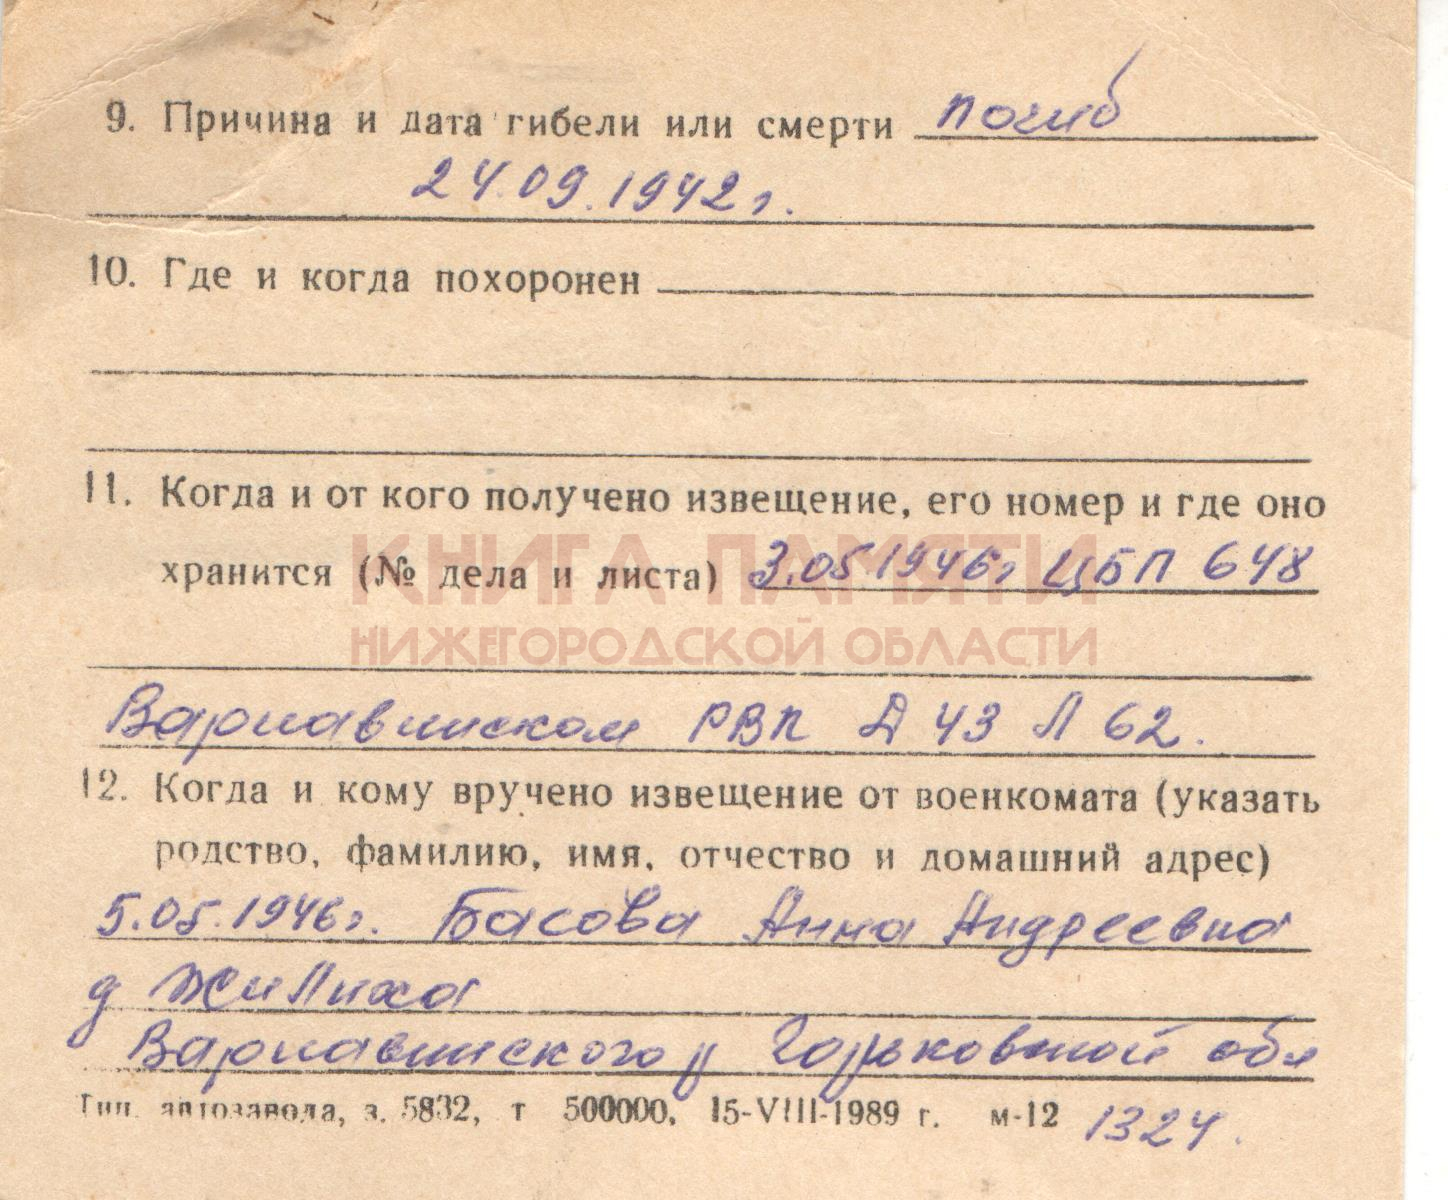 9. Причина и дата гибели или смерти погиб
24.09.1942г.
10. Где и когда похоронен
11. Когда и от кого получено извещение, его номер и где оно
хранится (№ дела и листа) 3.05.1946г ЦБП 648
КНИГА ПАМЯТИ
НИЖЕГОРОДСКОЙ ОБЛАСТИ
Варнавинском РВК Д 43 Л 62.
12. Когда и кому вручено извещение от военкомата (указать
родство, фамилию, имя, отчество и домашний адрес)
5.05.1946г. Басова Анна Андреевна
д Жилиха
Варнавинского р Горьковской обл
Тип. автозавода, з. 5832, т 500000, 15-VIII-1989 г. м-12 1324.